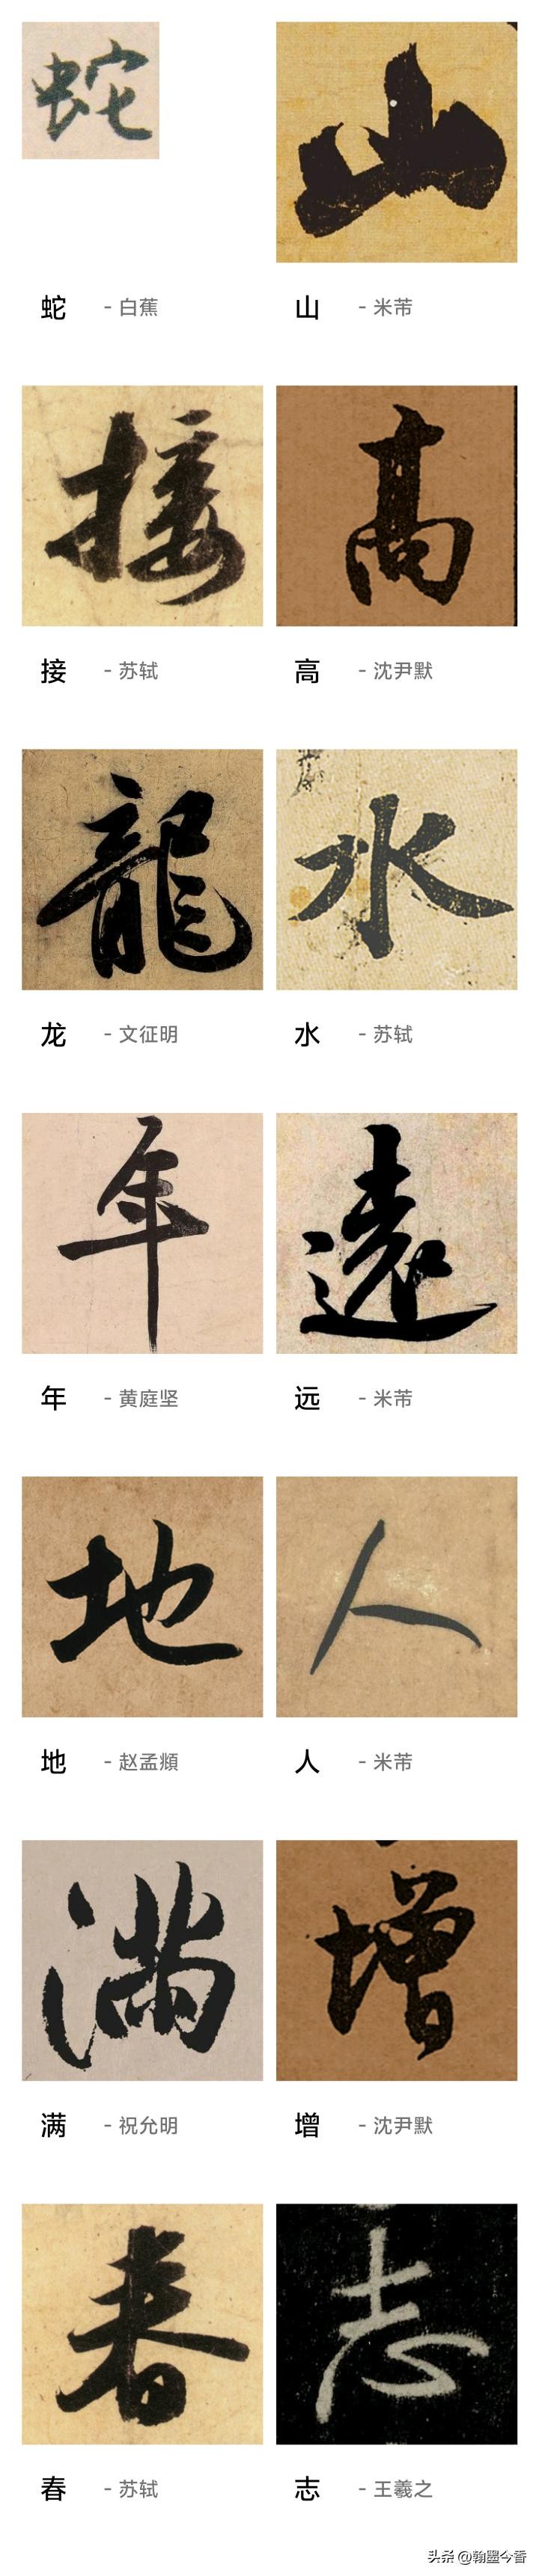 蛇 山
蛇 - 白蕉 山 - 米芾
接 高
接 - 苏轼 高 - 沈尹默
龍 水
龙 - 文征明 水 - 苏轼
年 遠
年 - 黄庭坚 远 - 米芾
地 人
地 - 赵孟頫 人 - 米芾
满 增
满 - 祝允明 增 - 沈尹默
春 志
春 - 苏轼 志 - 王羲之
头条 @翰墨今香